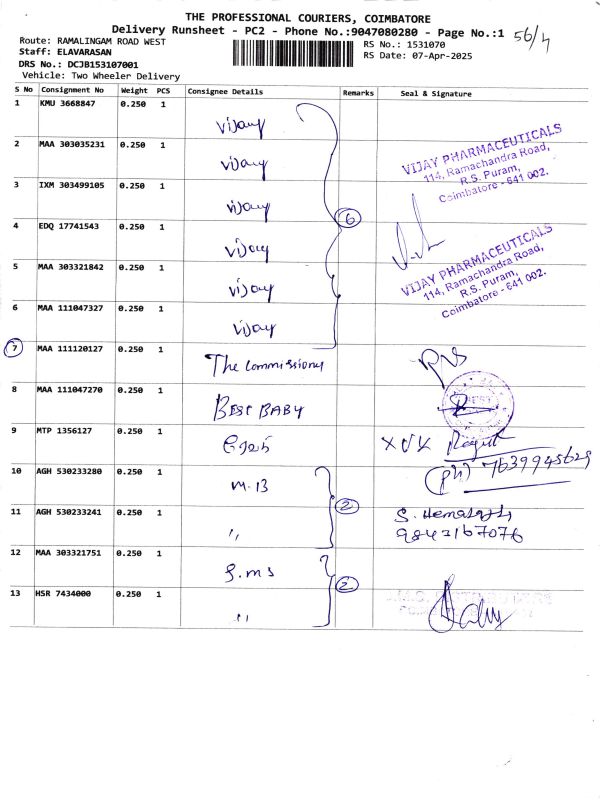 THE PROFESSIONAL COURIERS, COIMBATORE
Delivery Runsheet - PC2 - Phone No.:9047080280 - Page No.:1
56/4
Route: RAMALINGAM ROAD WEST
RS No.: 1531070
Staff: ELAVARASAN
RS Date: 07-Apr-2025
DRS No.: DCJB153107001
Vehicle: Two Wheeler Delivery
S No Consignment No Weight PCS Consignee Details Remarks Seal & Signature
1 KMU 3668847 0.250 1 Vijay
2 MAA 303035231 0.250 1 Vijay
VIJAY PHARMACEUTICALS
114, Ramachandra Road,
R.S. Puram,
Coimbatore - 641 002.
3 IXM 303499105 0.250 1 Vijay
6
4 EDQ 17741543 0.250 1 Vijay
VIJAY PHARMACEUTICALS
114, Ramachandra Road,
R.S. Puram,
Coimbatore - 641 002.
5 MAA 303321842 0.250 1 Vijay
6 MAA 111047327 0.250 1 Vijay
7 MAA 111120127 0.250 1 The Commissiony
8 MAA 111047270 0.250 1 BEST BABY
9 MTP 1356127 0.250 1
(Ph) 7639945629
10 AGH 530233280 0.250 1 M.B
2
11 AGH 530233241 0.250 1 ,,
S. Hemalatha
9843167076
12 MAA 303321751 0.250 1 S.MS
2
13 HSR 7434000 0.250 1 ,,